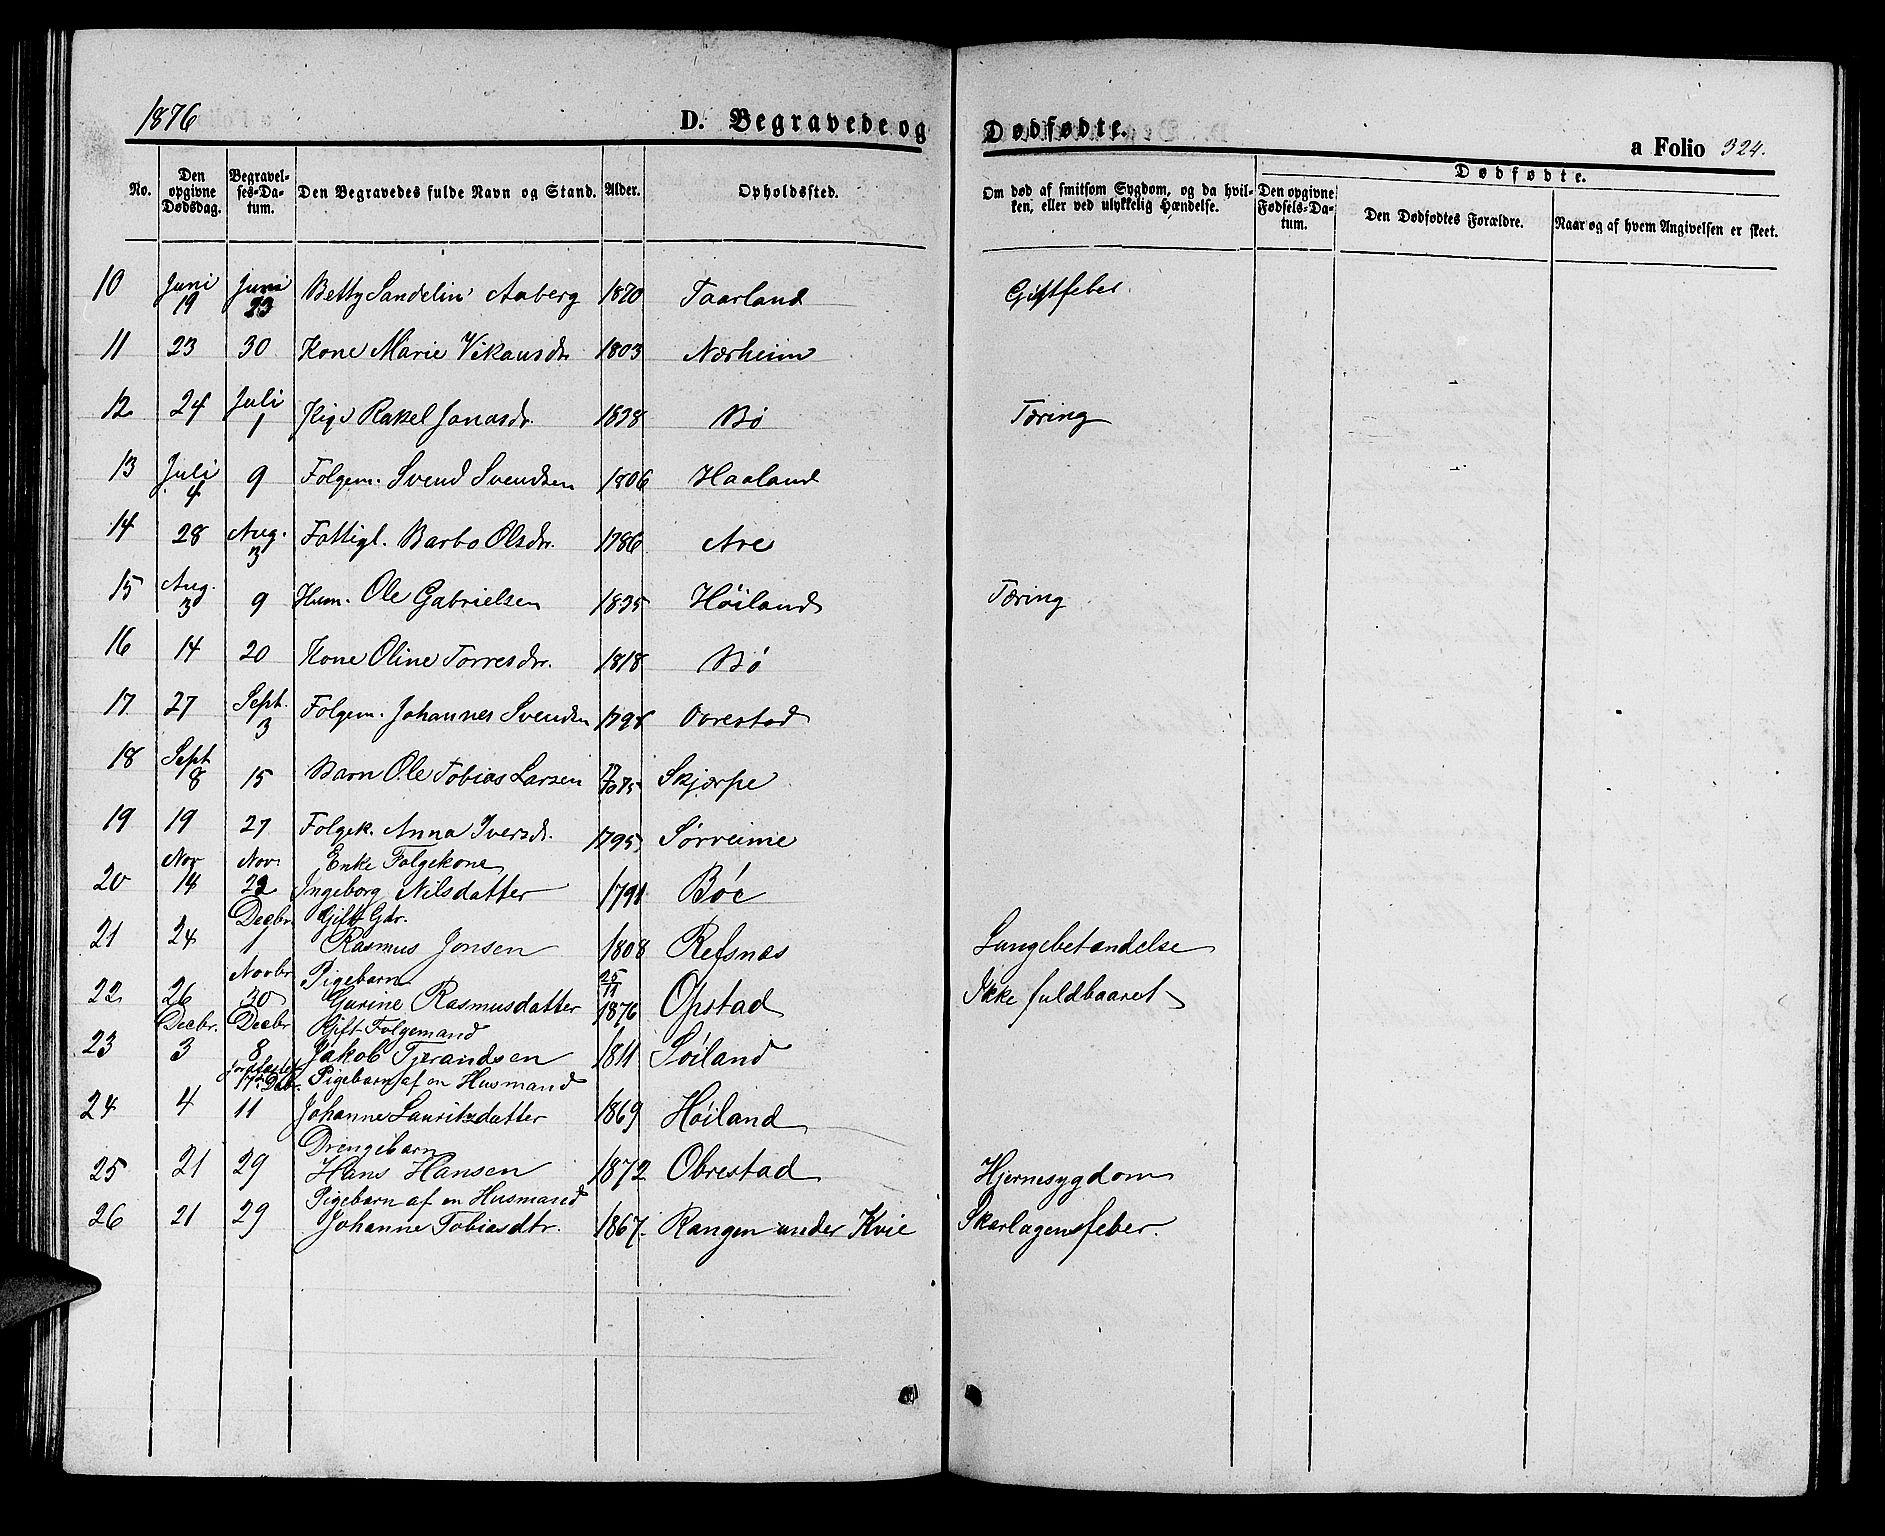 1876
D. Begravede og Dødfødte.
a Folio 324.
No.
Den opgivne Dødsdag.
Begravel-ses-Da-tum.
Den Begravedes fulde Navn og Stand.
Alder.
Opholdssted.
Om død af smitsom Sygdom, og da hvil-ken, eller ved ulykkelig Hændelse.
Dødfødte.
Den opgivne Fødsels-Da-tum.
Den Dødfødtes Forældre.
Naar og af hvem Angivelsen er skeet.
10 Juni 19 Juni 23 Betty Sandelin Aaberg 1870 Taarland Giftfeber
11 23 30 Kone Marie Vikansdr. 1803 Nærheim
12 24 Juli 1 Pige Rakel Jonasdr. 1838 Bø Tæring
13 Juli 4 9 Folgem. Svend Svendsen 1806 Haaland
14 28 Aug. 3 Fattigl. Barbo Olsdr. 1786 Are
15 Aug. 3 9 Husm. Ole Gabrielsen 1835 Høiland Tæring
16 14 20 Kone Oline Torresdr. 1818 Bø
17 27 Sept. 3 Folgem. Johannes Svendsen 1798 Ovrestad
18 Sept 8 15 Barn Ole Tobias Larsen 75 Skjærpe
19 19 27 Folgek. Anna Iversd. 1795 Sørreime
Nov Nov. Enke Folgekone
20 14 22 Ingeborg Nilsdatter 1791 Bøe
Decbr. Gift Gdr.
21 24 1 Rasmus Jonsen 1808 Refsnæs Lungebetændelse
Novbr. Pigebarn 25/11
22 26 30 Gurine Rasmusdatter 1876 Opstad Ikke fuldbaaret
Decbr. Decbr Gift Folgemand
23 3 8 Jakob Tjerandsen 1811 Søiland
17de Debr. Pigebarn af en Husmand
24 4 11 Johanne Lauritzdatter 1869 Høiland
Drengebarn
25 21 29 Hans Hansen 1872 Obrestad Hjernesygdom
Pigebarn af en Husmand
26 21 29 Johanne Tobiasdtr. 1867. Rangen under Kvie Skarlagensfeber.